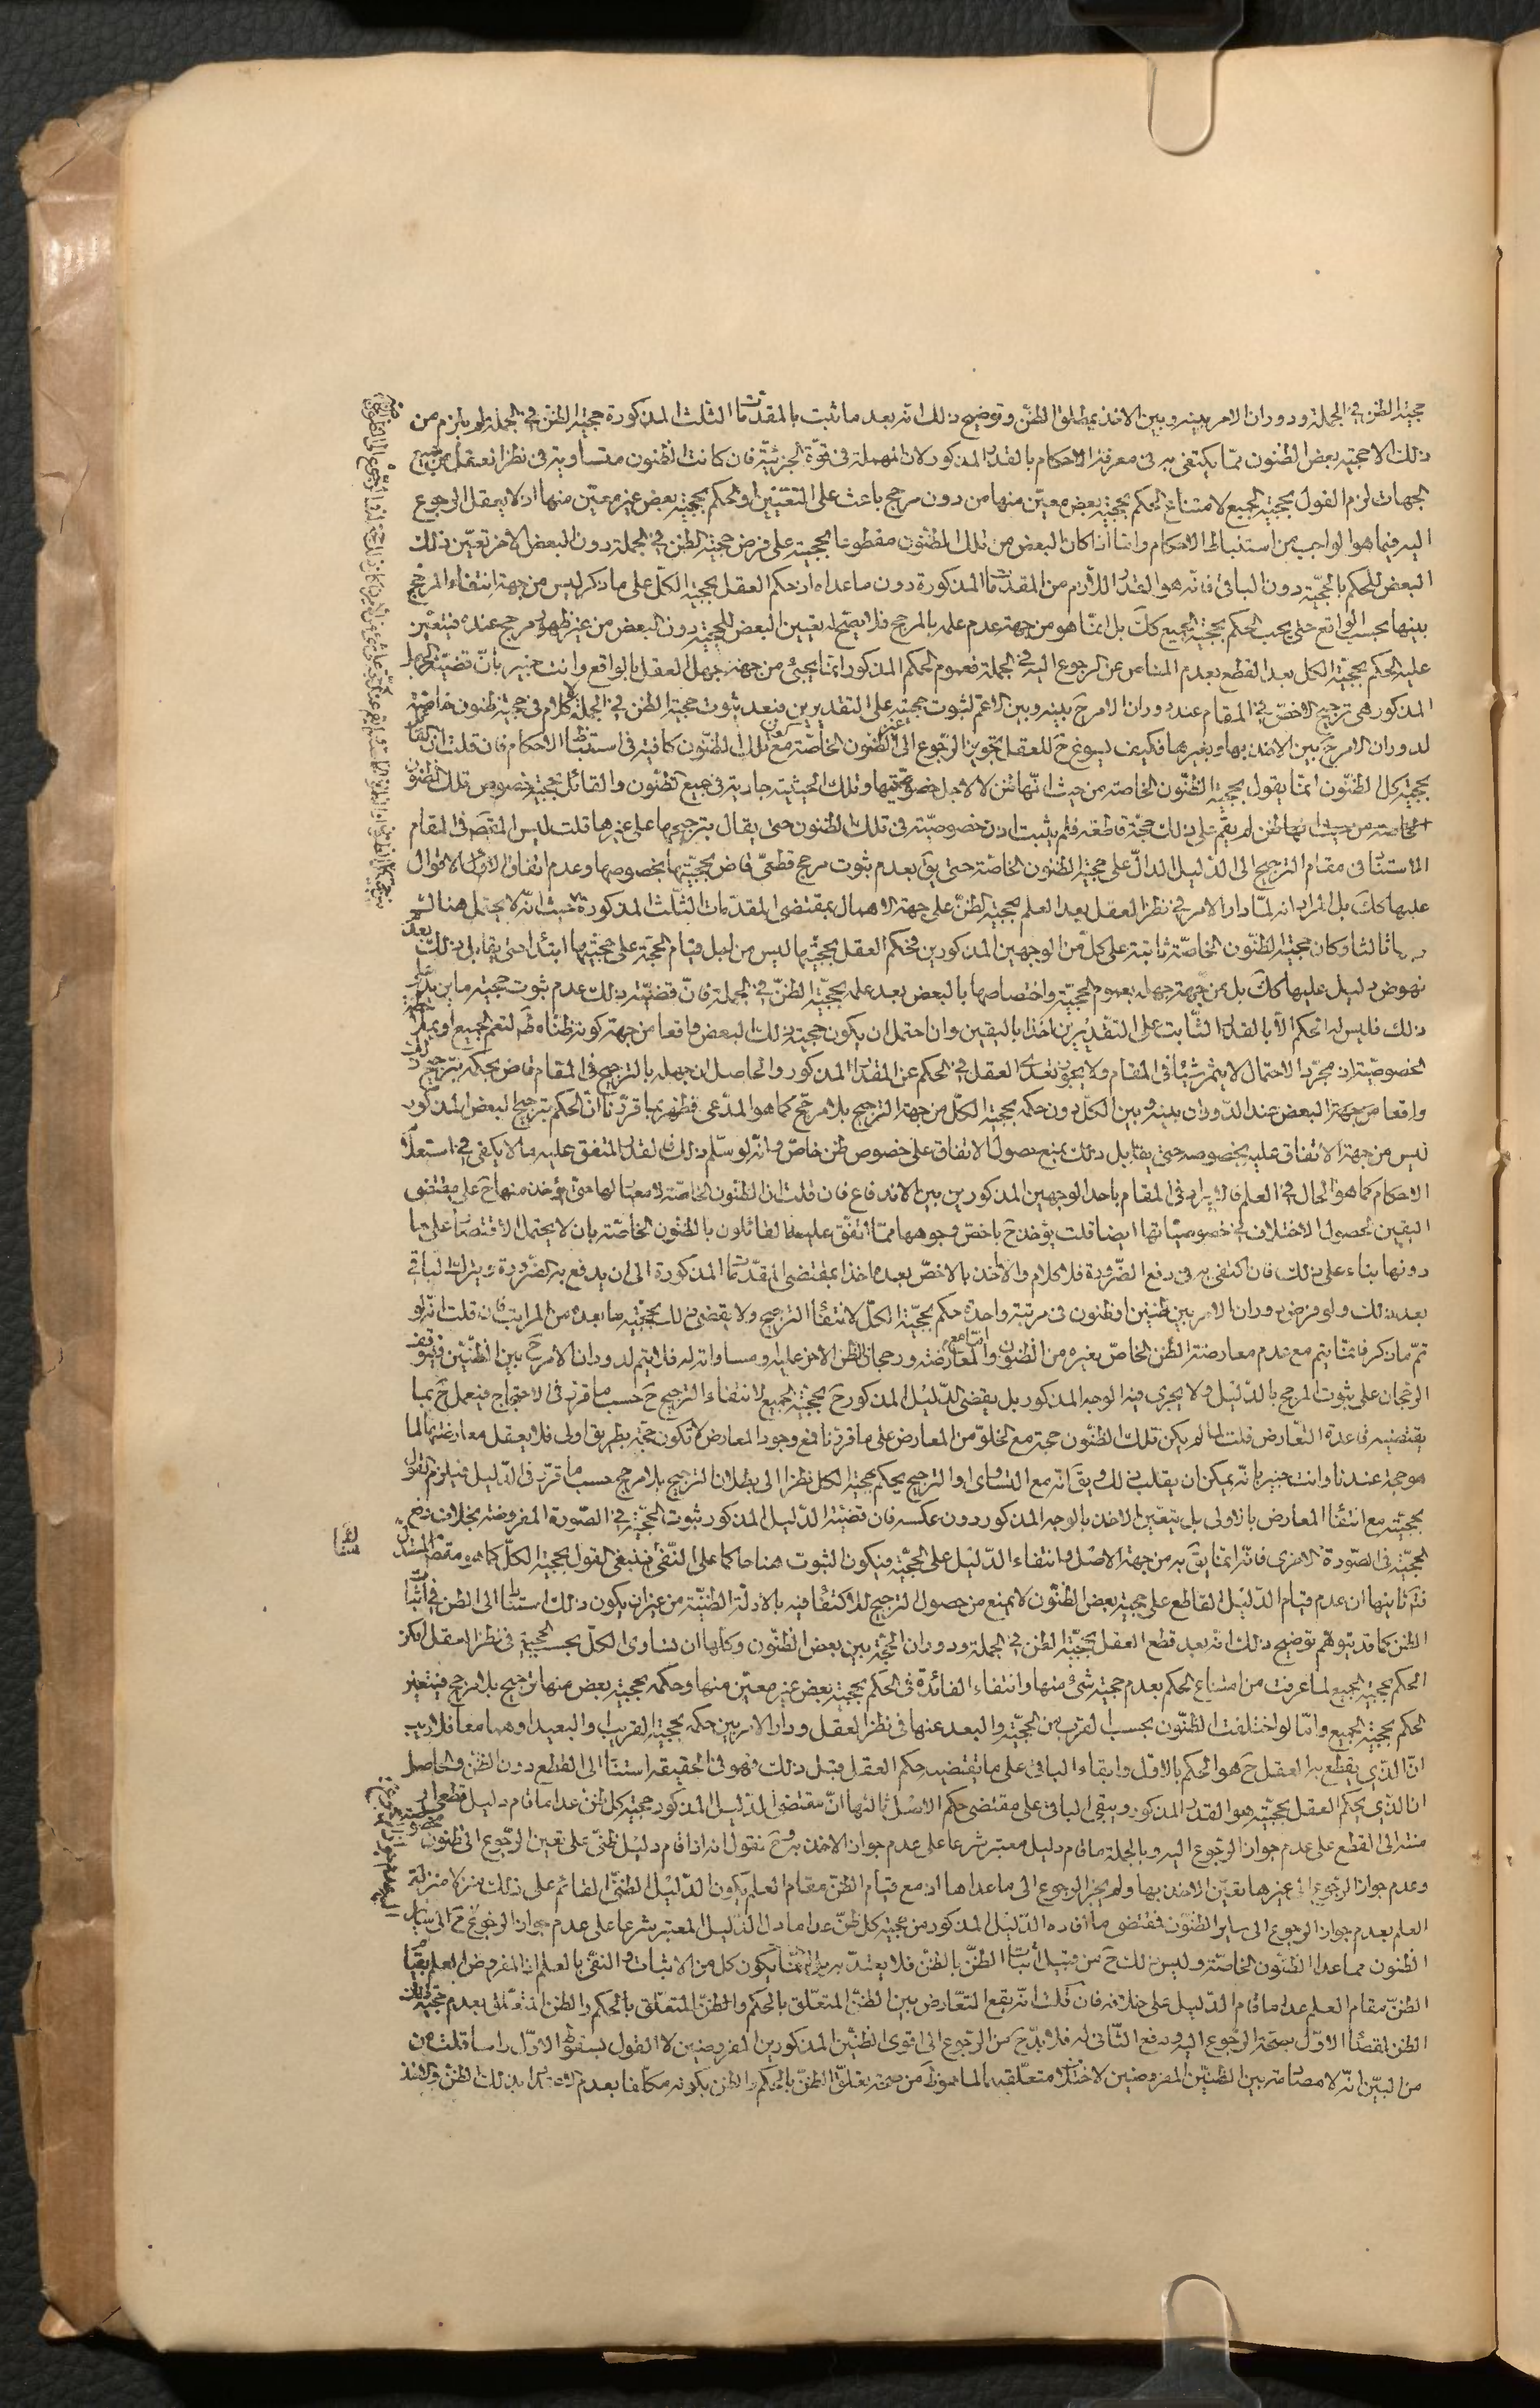 حجية الظن في الجملة ودوران الامر بينه وبين الاخذ بمطلق الظن وتوضيح ذلك انه بعد ما ثبت بالمقدمات الثلث المذكورة حجية الظن في الجملة لم يلزم من
ذلك الا حجية بعض الظنون مما يكتفى به في معرفة الاحكام بالقدر المذكور لان المهملة في قوة الجزئية فان كانت الظنون متساوية في نظر العقل من جميع
الجهات لزم القول بحجية الجميع لامتناع الحكم بحجية بعض معين منها من دون مرجح باعث على التعيين او الحكم بحجية بعض غير معين منها اذ لا يعقل الرجوع
اليه فيما هو الواجب من استنباط الاحكام واما اذا كان البعض من تلك الظنون مقطوعا بحجيته على فرض حجية الظن في الجملة دون البعض الاخر تعين ذلك
البعض للحكم بالحجية دون الباقي فانه هو القدر اللازم من المقدمات المذكورة دون ما عداه اذ حكم العقل بحجية الكل على ما ذكر ليس من جهة انتفاء المرجح
بينها بحسب الواقع حتى يجب الحكم بحجية الجميع كك بل انما هو من جهة عدم علمه بالمرجح فلا يصح له تعيين البعض للحجية دون البعض من غير ظهور مرجح عنده فيتعين
عليه الحكم بحجية الكل بعد القطع بعدم المناص عن الرجوع اليه في الجملة فعموم الحكم المذكور انما يجيئ من جهة جهل العقل بالواقع وانت خبير بان قضية الجهل
المذكور هي ترجيح الاخص في المقام عند دوران الامر ح بينه وبين الاعم لثبوت حجيته على التقديرين فبعد ثبوت حجية الظن في الجملة لا كلام في حجية ظنون خاصة
لدوران الامر ح بين الاخذ بها وبغيرها فكيف يسوغ ح للعقل تجويز الرجوع الى غير الظنون الخاصة مع كون تلك الظنون كافية في استنباط الاحكام فان قلت ان القائل
بحجية كل الظنون انما يقول بحجية الظنون الخاصة من حيث انها ظن لا لاجل خصوصيتها وتلك الحيثية جارية في جميع الظنون والقائل بحجية خصوص تلك الظنون
الخاصة من حيث انها ظن لم يقم على ذلك حجة قاطعة فلم يثبت اذن خصوصية في تلك الظنون حتى يقال بترجيحها على غيرها قلت ليس المقصود في المقام
الاستناد في مقام الترجيح الى الدليل الدال على حجية الظنون الخاصة حتى يق بعدم ثبوت مرجح قطعي قاض بحجيتها بخصوصها وعدم اتفاق الاقوال
عليها كك بل المراد انه لما دار الامر في نظر العقل بعد العلم بحجية الظن على جهة الاهمال بمقتضى المقدمات الثلث المذكورة حيث انه لا يحتمل هنا
ثالثا وكان حجية الظنون الخاصة ثابتة على كل من الوجهين المذكورين فحكم العقل بحجيتها ليس من اجل قيام الحجة على حجيتها ابتداء حتى يقابل ذلك بعدم
نهوض دليل عليها كك بل من جهة جهله بعموم الحجية واختصاصها بالبعض بعد علمه بحجية الظن في الجملة فان قضية ذلك عدم ثبوت حجية ما يزيد على
ذلك فليس له الحكم الا بالقدر الثابت على التقديرين اخذا باليقين وان احتمل ان يكون حجية ذلك البعض واقعا من جهة كونه ظنا مط لتعم الجميع او بملاحظة
الخصوصية اذ مجرد الاحتمال لا يثمر شيئا في المقام ولا يجوز تعدي العقل في الحكم عن المقدار المذكور والحاصل ان جهله بالترجيح في المقام قاض بحكمه بترجيح ذلك
واقعا من جهة البعض عند الدوران بينه وبين الكل دون حكمه بحجية الكل من جهة الترجيح بلا مرجح كما هو المدعى فظهر بما قررنا ان الحكم بترجيح البعض المذكور
ليس من جهة الاتفاق عليه بخصوصه حتى يقابل ذلك بمنع حصول الاتفاق على خصوص ظن خاص وانه لو سلم ذلك فالقدر المتفق عليه مما لا يكفى في استعلام
الاحكام كما هو الحال في العلم فالايراد في المقام باحد الوجهين المذكورين بين الاندفاع فان قلت ان الظنون الخاصة لا معيار لها حتى يؤخذ منها ح على مقتضى
اليقين لحصول الاختلاف في خصوصياتها ايضا قلت يؤخذ ح باخص وجوهها مما اتفق عليه القائلون بالظنون الخاصة بان لا يحتمل الاقتصار على ما
دونها بناء على ذلك فان اكتفى به في دفع الضرورة فلا كلام والا اخذ بالاخص بعده اخذا بمقتضى المقدمات المذكورة الى ان يدفع به الضرورة ويترك الباقي
بعد ذلك ولو فرض دوران الامر بين ظنين او ظنون في مرتبة واحدة حكم بحجية الكل لانتفاء الترجيح ولا يقضى ذلك بحجية ما بعده من المراتب فان قلت انه لو
تم ما ذكر فانما يتم مع عدم معارضة الظن الخاص بغيره من الظنون واما مع المعارضة ورجحان الظن الاخر عليه او مساواته له فلا يتم لدوران الامر ح بين الظنين فيتوقف
الرجحان على ثبوت المرجح بالدليل ولا يجرى فيه الوجه المذكور بل يقضى الدليل المذكور ح بحجية الجميع لانتفاء الترجيح ح حسب ما قرر في الاحتجاج فيعمل ح بما
يقتضيه قاعدة التعارض قلت لما لم يكن تلك الظنون حجة مع الخلو من المعارض على ما قررنا فمع وجود المعارض لا تكون حجة بطريق اولى فلا يعقل معارضتها لما
هو حجة عندنا وانت خبير بانه يمكن ان يقلب ذلك ويق انه مع التساوي او الترجيح يحكم بحجية الكل نظرا الى بطلان الترجيح بلا مرجح حسب ما قرر في الدليل فيلزم القول
بحجيته مع انتفاء المعارض بالاولى بل يتعين الاخذ بالوجه المذكور دون عكسه فان قضية الدليل المذكور ثبوت الحجية في الصورة المفروضة بخلاف دفع
الحجية في الصورة الاخرى فانه انما يق به من جهة الاصل وانتفاء الدليل على الحجية فيكون الثبوت هنا حاكما على النفى فينبغي القول بحجية الكل كما هو مقصود المستدل
فت ثانيها ان عدم قيام الدليل القاطع على حجية بعض الظنون لا يمنع من حصول الترجيح للاكتفاء فيه بالادلة الظنية من غير ان يكون ذلك استنادا الى الظن في اثبات
الظن كما قد يتوهم توضيح ذلك انه بعد قطع العقل بحجية الظن في الجملة ودوران الحجة بين بعض الظنون وكلها ان تساوى الكل بحسب الحجية في نظر العقل لزم
الحكم بحجية الجميع لما عرفت من امتناع الحكم بعدم حجية شئ منها وانتفاء الفائدة في الحكم بحجية بعض غير معين منها وحكمه بحجية بعض منها ترجيح بلا مرجح فيتعين
الحكم بحجية الجميع واما لو اختلفت الظنون بحسب القرب من الحجية والبعد عنها في نظر العقل ودار الامر بين حكمه بحجية القريب او البعيد او هما معا فلا ريب
ان الذي يقطع به العقل ح هو الحكم بالاول وابقاء الباقي على ما يقتضيه حكم العقل قبل ذلك فهو في الحقيقة استناد الى القطع دون الظن والحاصل
ان الذي يحكم العقل بحجيته هو القدر المذكور ويبقى الباقي على مقتضى حكم الاصل ثالثها ان مقتضى الدليل المذكور حجية كل ظن عدا ما قام دليل قطعي او
منته الى القطع على عدم جواز الرجوع اليه وبالجملة ما قام دليل معتبر شرعا على عدم جواز الاخذ به وح نقول انه اذا قام دليل ظني على تعين الرجوع الى ظنون
وعدم جواز الرجوع الى غيرها تعين الاخذ بها ولم يجز الرجوع الى ما عداها اذ مع قيام الظن مقام العلم يكون الدليل الظني القائم على ذلك منزلا منزلة
العلم بعدم جواز الرجوع الى ساير الظنون فمقتضى ما افاده الدليل المذكور من حجية كل ظن عدا ما دل الدليل المعتبر شرعا على عدم جواز الرجوع ح الى ساير
الظنون مما عدا الظنون الخاصة وليس ذلك ح من قبيل اثبات الظن بالظن فلا يعتد به بل انما يكون كل من الاثبات والنفي بالعلم اذ المفروض العلم بقيام
الظن مقام العلم عدا ما قام الدليل على خلافه فان قلت انه يقع التعارض بين الظن المتعلق بالحكم والظن المتعلق بالحكم والظن المتعلق بعدم حجية ذلك
الظن لقضاء الاول بصحة الرجوع اليه ودفع الثاني له فلا بد ح من الرجوع الى اقوى الظنين المذكورين المفروضين لا القول بسقوط الاول راسا قلت من
من البين انه لا مصادمة بين الظنين المفروضين لاختلاف متعلقيهما لما هو ظ من صحة تعلق الظن بالحكم والظن بكونه مكلفا بعدم الاخذ بذلك الظن والاخذ